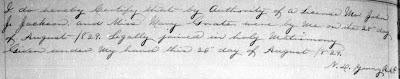 I do hereby Certify that by Authority of a License Mr John
J. Jackson, and Miss Mary Coats were by me on the 28 day
of August 1829. Legally joined in holy Matrimony
Given under my hand this 28 day of August 1829.
N. D. Young